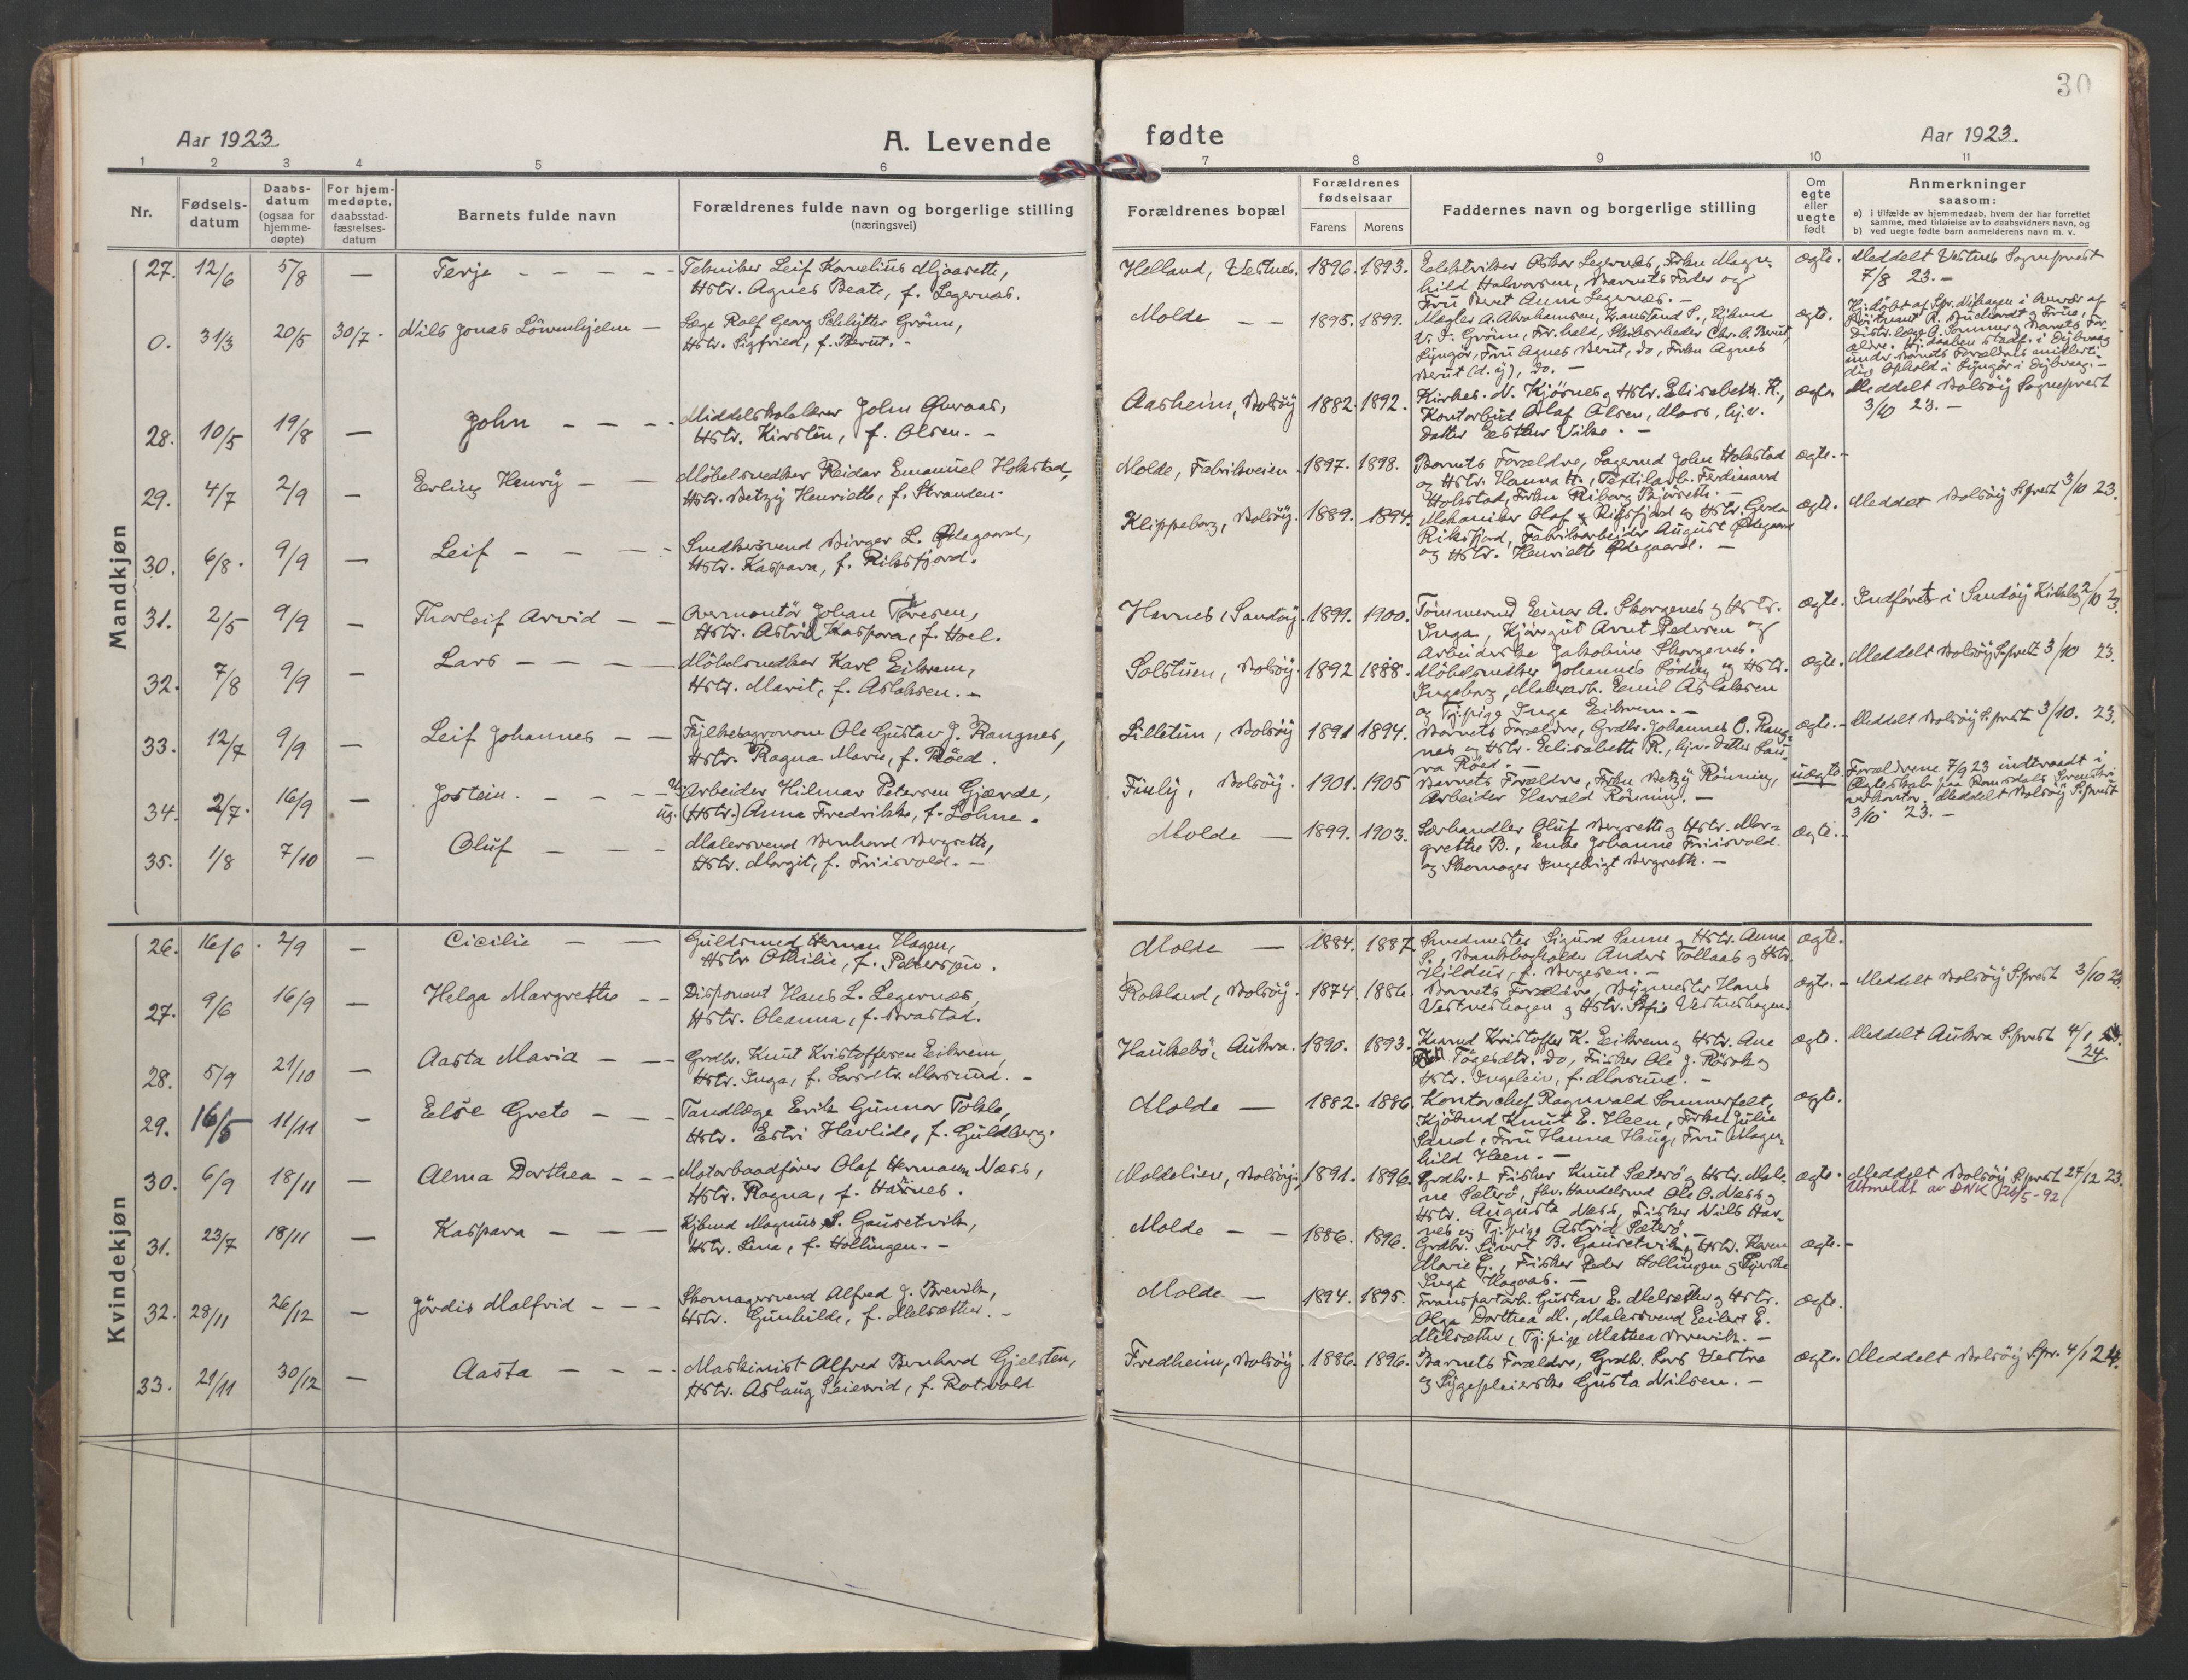 30
Aar 1923.
A. Levende
fødte
Aar 1923.
1 2 3 4 5 6 7 8 9 10 11
Nr.
Fødsels-
datum
Daabs-
datum
(ogsaa for
hjemme-
døpte)
For hjem-
medøpte,
daabsstad-
fæstelses-
datum
Barnets fulde navn
Forældrenes fulde navn og borgerlige stilling
(næringsvei)
Forældrenes bopæl
Forældrenes
fødselsaar
Farens Morens
Faddernes navn og borgerlige stilling
Om
egte
eller
uegte
født
Anmerkninger
saasom:
a) i tilfælde av hjemmedaab, hvem der har forrettet
samme, med tilføielse av to daabsvidners navn, og
b) ved uegte fødte barn anmelderens navn m. v.
Mandkjøn
27. 12/6 5/8 — Terje - - - -
Tekniker Leif Kornelius Mjaaseth,
Hstr. Agnes Beate, f. Legernæs.
Helland, Vestnes. 1896. 1893.
Elektriker Oskar Legernæs, Frkn Magn-
hild Halvorsen, Barnets Fader og
Fru Beret Anna Legernæs. —
ægte.
Meddelt Vestnes Sogneprest
7/8 23. —
0. 31/3 20/5 30/7. Nils Jonas Löwenhjelm —
Læge Rolf Georg Schlytter Grönn,
Hstr. Sigfried, f. Berut. -
Molde — — 1895. 1899.
Mægler A. Abrahamsen, Kranstund S., Kjbmd
V. F. Grönn, Fr.hald, Skibsrheder Chr. A. Berut,
Lyngör, Fru Agnes Berut, do, Frkn Agnes
Berut (d. y), do. —
ægte.
Hj.döbt af Spr. Nyhagen i Nærvær af
R. Buchardt og Frue,
Distr.læge A. Sommer og Barnets For-
ældre. Hj.daaben stadf. i Dybvaag
under Barnets Forældres midlerti-
dig Ophold i Lyngör i Dybvaag. —
28. 10/5 19/8 — John - - - -
Middelskolelærer John Queraas,
Hstr. Kirsten, f. Olsen. —
Aasheim, Bolsöy 1882. 1892.
Kirkes. N. Kjörnes og Hstr. Elisabeth K.,
Kontorbud Olaf Olsen, Moss, hj.v.
Datter Esther Vike. —
ægte.
Meddelt Bolsöy Sogneprest
3/10 23. —
29. 4/7 2/9 — Erling Henry — —
Möbelsnedker Reidar Emanuel Holstad,
Hstr. Betzy Henriette, f. Stranden.
Molde, Fabrikveien. 1897. 1898.
Barnets Forældre, Lagermd John Holstad
og Hstr. Hanna H., Textilarb. Ferdinand
Holstad, Frkn Riborg Bjerseth. —
ægte.-
30. 6/8. 9/9 — Leif - - - -
Snedkersvend Birger L. Ødegaard,
Hstr. Kaspara, f. Riksfjord.
Klippeborg, Bolsöy. 1889. 1894.
Mekaniker Olaf Riksfjord og Hstr. Gerda
Riksfjord, Fabrikarbeider August Ødegaard
og Hstr. Henriette Ødegaard. —
ægte.
Meddelt Bolsöy S.prest 3/10 23.
31. 2/5 9/9 — Thorleif Arvid — —
Avermontör Johan Toresen,
Hstr. Astrid Kaspara, f. Hoel.
Harnes, Sandöy. 1899. 1900.
Tömmermd Einar A. Skorgenes og Hstr.
Inga, Kjöregut Arnt Pedersen og
Arbeiderske Jakobine Skorgenes.
ægte.
Indföres i Sandöy Kirkebog 2/10 23.
32. 7/8 9/9 — Lars - - - -
Möbelsnedker Karl Eikrem,
Hstr. Marit, f. Aslaksen. —
Solstuen, Bolsöy. 1892 1888.
Möbelsnedker Johannes Rödöy og Hstr.
Ingeborg, Malerarb. Emil Aslaksen
og Tj.pige Inga Eikrem. —
ægte.
Meddelt Bolsöy S.prest 3/10 23.
33. 12/7 9/9 — Leif Johannes — —
Fylkesagronom Ole Gustav J. Rangnes,
Hstr. Ragna Marie, f. Röed.
Lilletun, Bolsöy 1891 1894.
Barnets Forældre, Grdbr. Johannes O. Rang-
nes og Hstr. Elisabeth R., hj.v. Datter Lau-
ra Röed. —
ægte.-
Meddelt Bolsöy S.prest 3/10. 23.
34. 2/7. 16/9 — Jostein. - - - -
Ug. Arbeider Hilmar Petersen Gjærde,
ug. (Hstr.) Anna Fredrikke, f. Löhne.
Furly, Bolsöy. 1901. 1905
Barnets Forældre, Frkn Betzy Rönning,
Arbeider Harald Rönning. —
uægte.
Forældrene 7/9 23 indtraadt i
Ægteskab paa Romsdals Sorenskri-
verkontor. Meddelt Bolsöy S.prest
3/10 23. —
35. 1/8 7/10 — Oluf - - -
Malersvend Bernhard Bergseth,
Hstr. Margit, f. Friisvold. —
Molde — 1899. 1903.
Lærhandler Oluf Bergseth og Hstr. Mar-
grethe B., Enke Johanne Friisvold.
og Skomager Ingebrigt Bergseth. —
ægte.-
Kvindekjøn
26. 16/6. 2/9 — Cicilie — —
Guldsmed Herman Hagen,
Hstr. Othilie, f. Petersen.
Molde — 1884. 1887.
Smedmester Sigurd Sanne og Hstr. Anna
S., Bankbogholder Anders Tollaas og Hstr.
Hildur, f. Bergesen. —
ægte.
27. 9/6 16/9 — Helga Margrethe - -
Disponent Hans L. Legernæs,
Hstr. Oleanna, f. Brastad.
Rokland, Bolsöy. 1874. 1886.
Barnets Forældre, Bygmester Hans
Vestneshagen og Hstr. Sofie Vestneshagen.
ægte. —
Meddelt Bolsöy S.prest 3/10 23.
28. 5/9 21/10 — Aasta Maria - -
Grdbr. Knut Kristoffersen Eikrem,
Hstr. Inga, f. Larsdtr. Morsund. -
Haukebö, Aukra. 1890. 1893.
Kaarmd Kristoffer K. Eikrem og Hstr. Ane
Tögesdtr. do, Fisker Ole J. Rösok og
Hstr. Ingeleiv, f. Morsund. —
ægte.
Meddelt Aukra S.prest 4/1
24.
29. 16/5 11/11 - Else Grete - - -
Tandlæge Erik Gunnar Tokle,
Hstr. Estri Havlide, f. Guldberg.
Molde — 1882. 1886.
Kontorchef Ragnvald Sommerfelt,
Kjöbmd Knut E. Heen, Frkn Julie
Sand, Fru Hanna Haug, Fru Magn-
hild Heen. —
ægte.
30. 6/9 18/11 — Alma Dorthea - -
Motorbaadförer Olaf Hermann Næss,
Hstr. Ragna, f. Harnes.
Moldelien, Bolsöy. 1891. 1896.
Grdbr. & Fisker Knut Sæterö og Hstr. Male-
ne Sæterö, fhv. Handelsmd Ole O. Næss og
Hstr. Augusta Næss, Fisker Nils Har-
nes og Tj.pige Astrid Sæterö. —
ægte.
Meddelt Bolsöy S.prest 27/12 23.
Utmeldt av DNK 26/5-92
31. 23/7 18/11 — Kaspara - - -
Kjbmd Magnus S. Gausetvik,
Hstr. Lina, f. Hollingen. -
Molde — — 1886. 1896.
Grdbr. Sivert B. Gausetvik og Hstr. Karen
Marie G., Fisker Peder Hollingen og Syerske
Inga Hagaas. —
ægte.-
32. 28/11 26/12 — Jördis Malfrid - - -
Skomagersvend Alfred J. Brevik,
Hstr. Gunhilde, f. Melsæther. -
Molde — 1894. 1895.
Transportarb. Gustav E. Melsæther og Hstr.
Olga Dorthea M., Malersvend Eilert E.
Melsæther, Tj.pige Mathea Brevik. —
ægte.
33. 21/11 30/12 — Aasta - - - -
Maskinist Alfred Bernhard Gjelsten,
Hstr. Aslaug Seiersid, f. Rotvold
Fredheim, Bolsöy. 1886. 1896.
Barnets Forældre, Grdbr. Lars Vestre
og Sygepleierske Gusta Nilsen. —
ægte.
Meddelt Bolsöy Spr. 4/1 24.